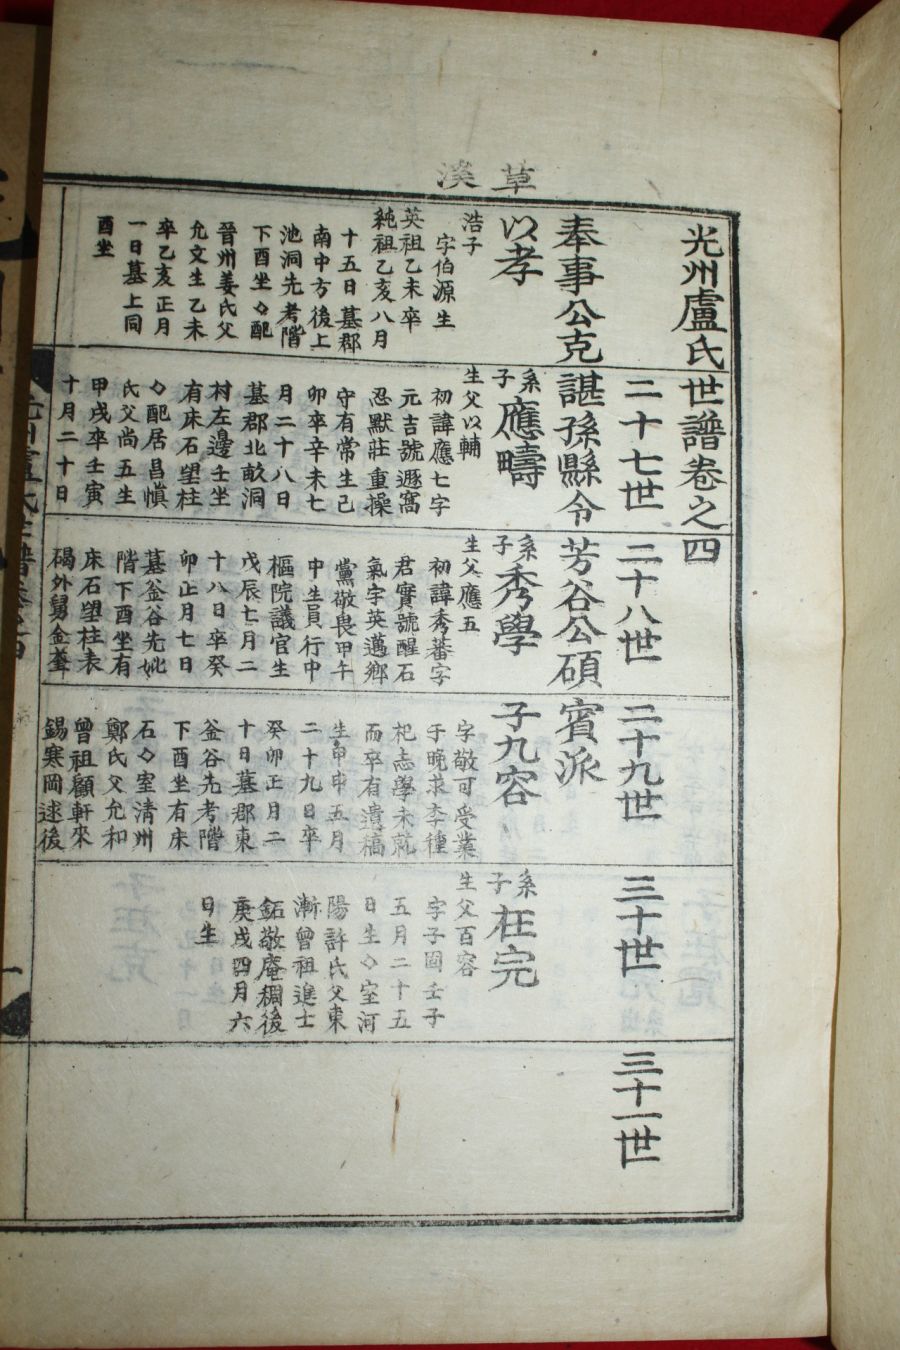 草溪
光州盧氏世譜卷之四
二十七世
二十八世
二十九世
三十世
三十一世
奉事公克諶孫縣令芳谷公碩賓派
以孝
浩子
字伯源生
英祖乙未卒
純祖乙亥八月
十五日墓郡
南中方後上
池洞先考階
下酉坐◇配
晉州姜氏父
允文生乙未
卒乙亥正月
一日墓上同
酉坐
系子應疇
生父以輔
初諱應七字
元吉號遯窩
忍默莊重操
守有常生己
卯卒辛未七
月二十八日
墓郡北畝洞
村左邊壬坐
有床石望柱
◇配居昌愼
氏父尚五生
甲戌卒壬寅
十月二十日
系子秀學
生父應五
初諱秀蕃字
君實號醒石
氣宇英邁鄉
黨敬畏甲午
中生員行中
樞院議官生
戊辰七月二
十八日卒癸
卯正月七日
墓釜谷先妣
階下酉坐有
床石望柱表
碣外舅金
子九容
字敬可受業
于晚求李種
杞志學未就
而卒有遺稿
生甲申五月
二十九日卒
癸卯正月二
十日墓郡東
釜谷先考階
下酉坐有床
石◇室清州
鄭氏父允和
曾祖顧軒來
錫寒岡逑後
系子枉完
生父百容
字子固壬子
五月二十五
日生◇室河
陽許氏父東
漸曾祖進士
鉐敬庵稠後
庚戌四月六
日生